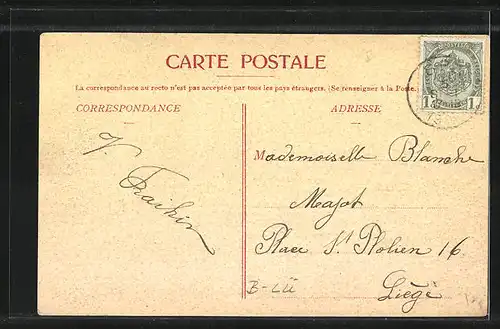 CARTE POSTALE
La correspondance au recto n'est pas acceptée par tous les pays étrangers. (Se renseigner à la Poste.)
CORRESPONDANCE
ADRESSE
1 1
V. Fraikin
Mademoiselle Blanche
Majot
Place St Pholien 16
Liège
B-LÜ